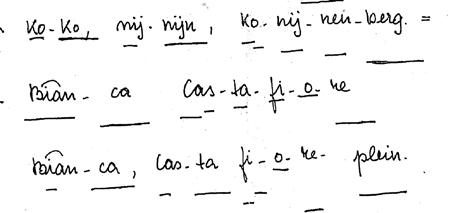 Ko-Ko, nij-nijn, Ko-nij-nen-berg. =
Bian-ca Cas-ta-fi-o-re
Bian-ca, Cas-ta fi-o-re-plein.